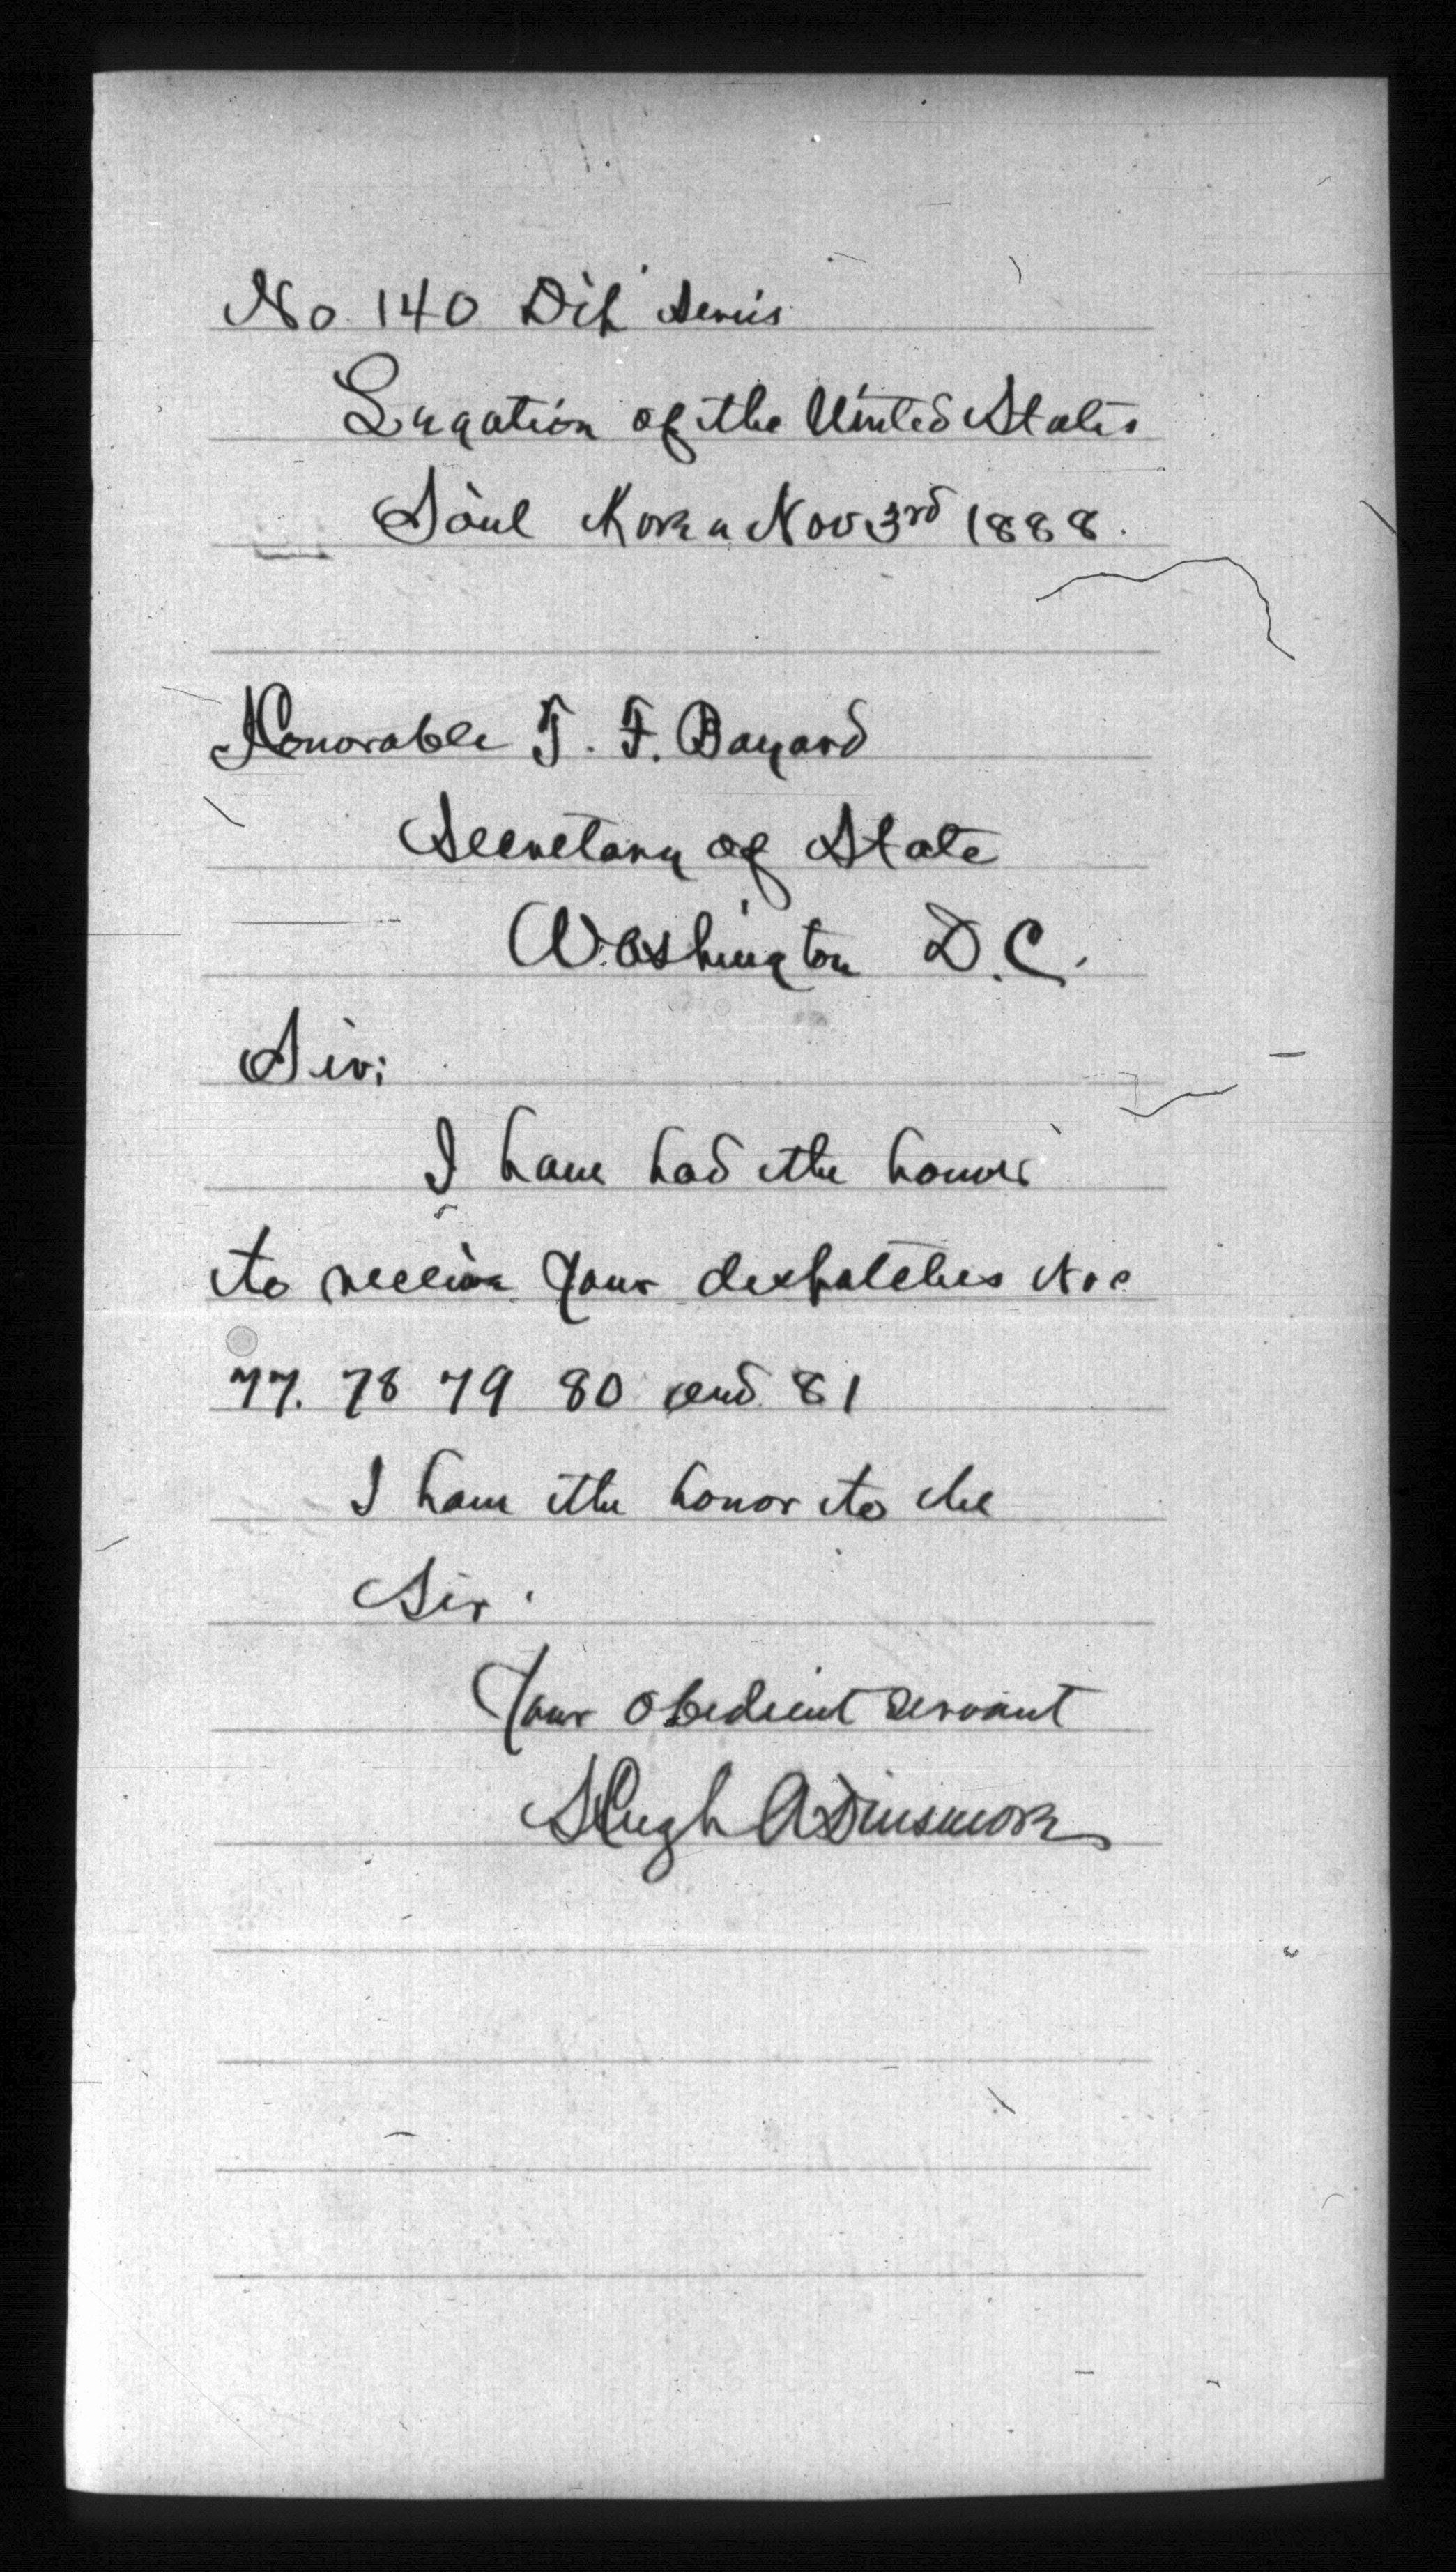 No 140 Dip Series
Legation of the United States
Söul Korea Nov 3rd 1888.
Honorable T. F. Bayard
Secretary of State
Washington D.C.
Sir;
I have had the honor
to receive your despatches Nos
77. 78 79 80 and 81
I have the honor to be
Sir.
Your obedient servant
Hugh A Dinsmore